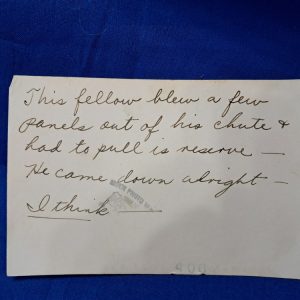 This fellow blew a few
panels out of his chute &
had to pull is reserve —
He came down alright —
I think —